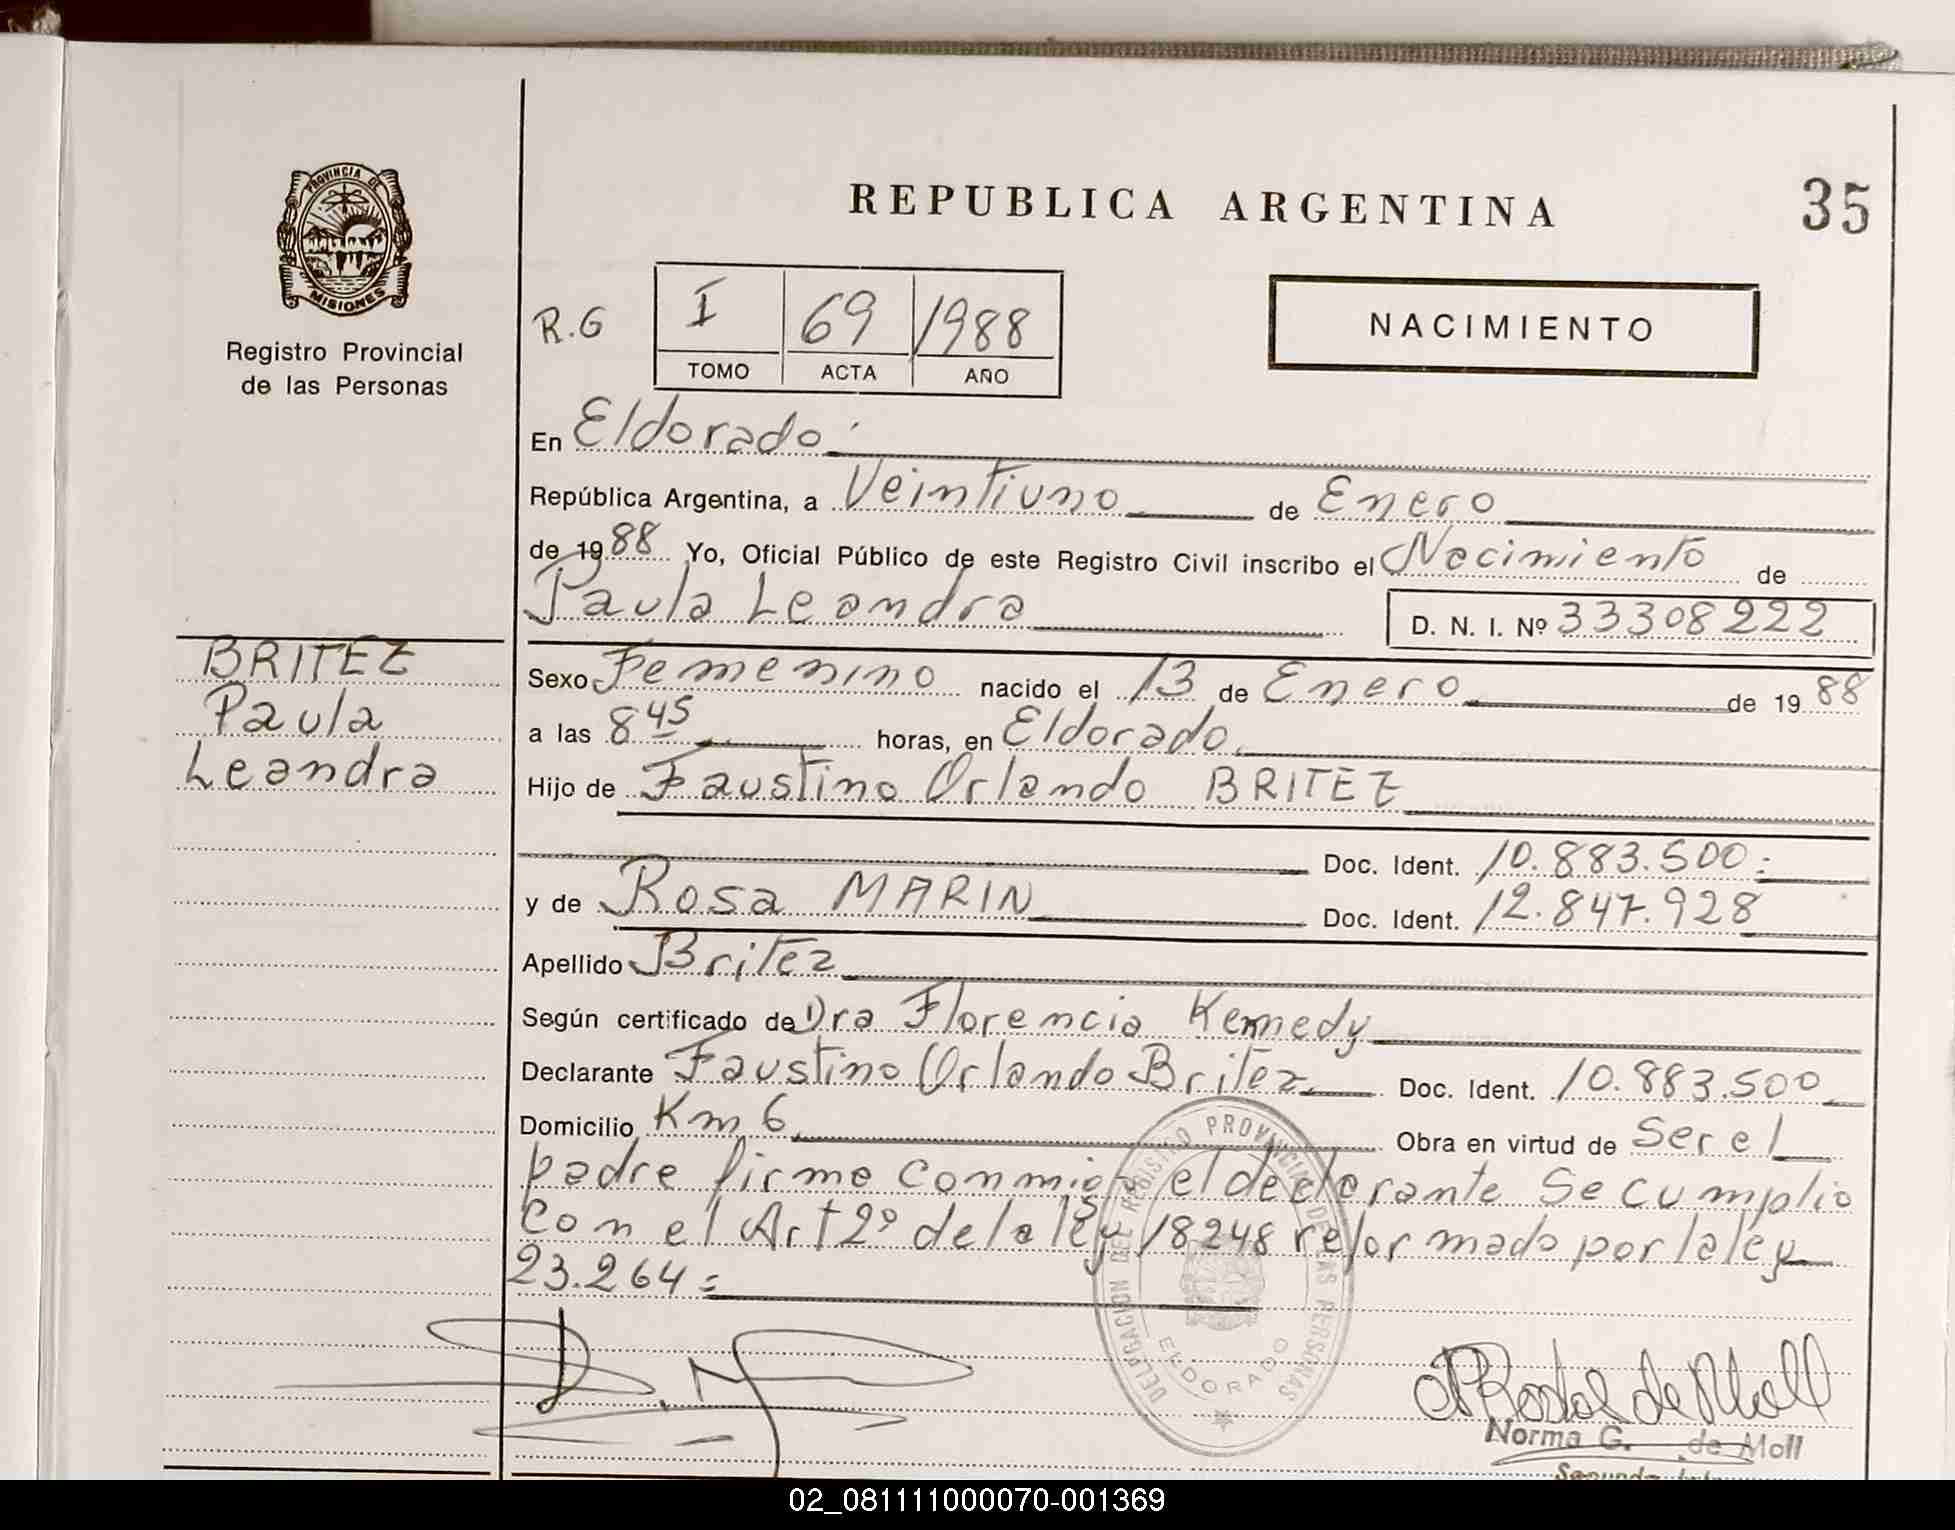 PROVINCIA DE
MISIONES
Registro Provincial
de las Personas
REPUBLICA ARGENTINA
35
R.G
I 69 1988
TOMO ACTA AÑO
NACIMIENTO
En Eldorado
República Argentina, a Veintiuno de Enero
de 1988 Yo, Oficial Público de este Registro Civil inscribo el Nacimiento de
Paula Leandra D. N. I. Nº 33308222
BRITEZ
Paula
Leandra
Sexo Femenino nacido el 13 de Enero de 1988
a las 8 45 horas, en Eldorado
Hijo de Faustino Orlando BRITEZ
Doc. Ident. 10.883.500
y de Rosa MARIN Doc. Ident. 12.847.928
Apellido Britez
Según certificado de Dra Florencia Kennedy
Declarante Faustino Orlando Britez Doc. Ident. 10.883.500
Domicilio Km 6 Obra en virtud de Ser el
padre firma conmigo el declarante Se cumplio
con el Art 2º de la ley 18248 reformado por la ley
23.264
DELEGACION DEL REGISTRO PROVINCIAL DE LAS PERSONAS
ELDORADO
de Moll
Norma G. de Moll
02_081111000070-001369